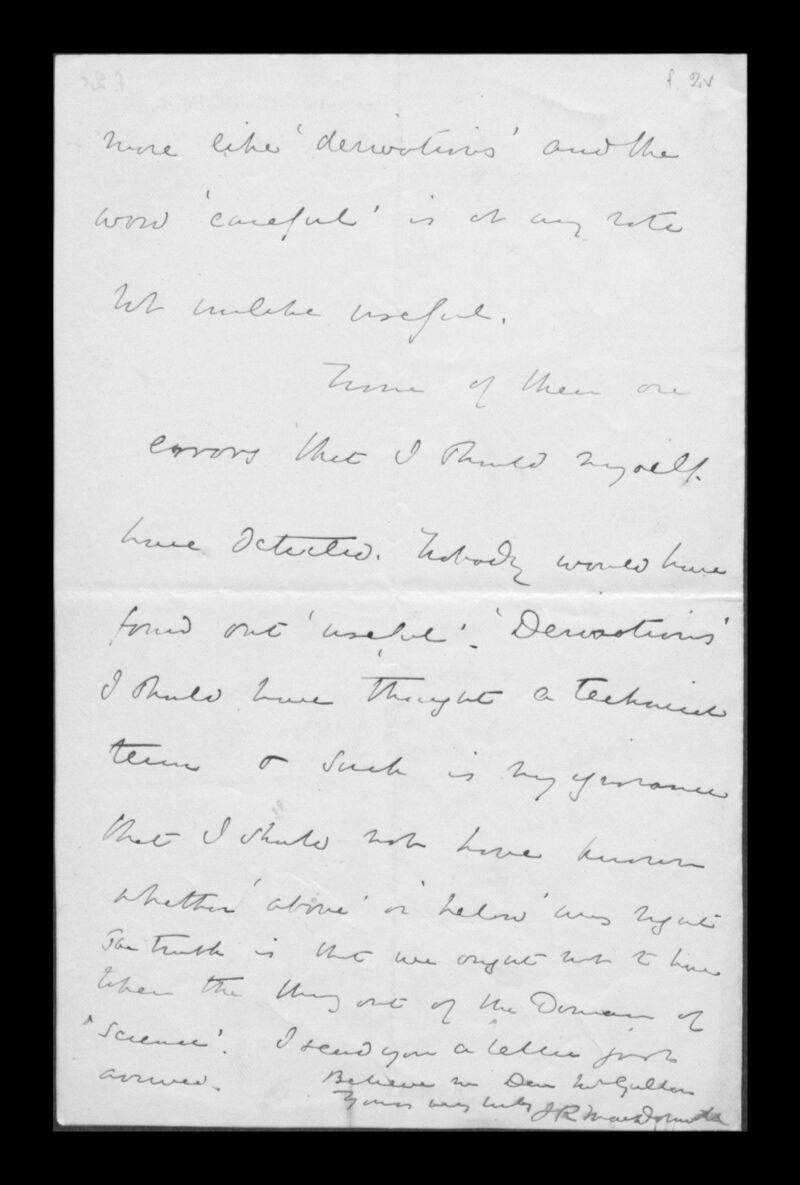 f. 2v
more like 'derivations' and the
word 'careful' is at any rate
not unlike useful.
None of them are
errors that I should myself
have detected. Nobody would have
found out 'useful'. 'Derivations'
I should have thought a technical
term & such is my ignorance
that I should not have known
whether 'above' or 'below' was right
The truth is that we ought not to have
taken the thing out of the Domain of
'Science'. I send you a letter just
arrived.
Believe me Dear Mr Galton
Yours very truly J R MacDonald